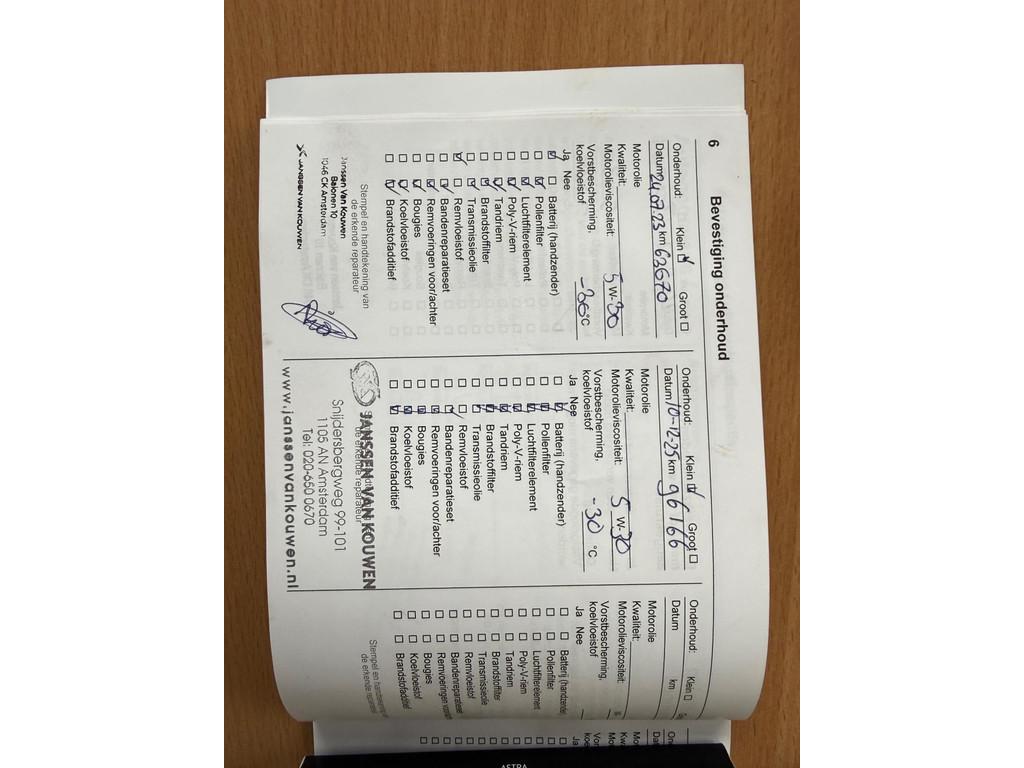 6 Bevestiging onderhoud
Onderhoud: Klein ☑ Groot ☐
Datum 24.07.23 km 63670
Motorolie
Kwaliteit:
Motorolieviscositeit: 5 W-30
Vorstbescherming,
koelvloeistof -30 °C
Ja Nee
☑ ☐ Batterij (handzender)
☐ ☑ Pollenfilter
☐ ☑ Luchtfilterelement
☐ ☑ Poly-V-riem
☐ ☑ Tandriem
☐ ☑ Brandstoffilter
☐ ☑ Transmissieolie
☑ ☐ Remvloeistof
☐ ☑ Bandenreparatieset
☐ ☑ Remvoeringen voor/achter
☐ ☑ Bougies
☐ ☑ Koelvloeistof
☐ ☑ Brandstofadditief
Stempel en handtekening van
de erkende reparateur
Janssen Van Kouwen
Balonen 10
1046 CK Amsterdam
JANSSEN VAN KOUWEN
Onderhoud: Klein ☑ Groot ☐
Datum 10-12-25 km 96166
Motorolie
Kwaliteit:
Motorolieviscositeit: 5 W-30
Vorstbescherming,
koelvloeistof -30 °C
Ja Nee
☐ ☑ Batterij (handzender)
☐ ☑ Pollenfilter
☐ ☑ Luchtfilterelement
☐ ☑ Poly-V-riem
☐ ☑ Tandriem
☐ ☑ Brandstoffilter
☐ ☑ Transmissieolie
☐ ☑ Remvloeistof
☐ ☑ Bandenreparatieset
☐ ☑ Remvoeringen voor/achter
☐ ☑ Bougies
☐ ☑ Koelvloeistof
☐ ☑ Brandstofadditief
de erkende reparateur
JANSSEN VAN KOUWEN
Snijdersbergweg 99-101
1105 AN Amsterdam
Tel: 020-650 0670
www.janssenvankouwen.nl
Onderhoud: Klein ☐
Datum km
Motorolie
Kwaliteit:
Motorolieviscositeit:
Vorstbescherming,
koelvloeistof
Ja Nee
☐ ☐ Batterij (handzender
☐ ☐ Pollenfilter
☐ ☐ Luchtfilterelement
☐ ☐ Poly-V-riem
☐ ☐ Tandriem
☐ ☐ Brandstoffilter
☐ ☐ Transmissieolie
☐ ☐ Remvloeistof
☐ ☐ Bandenreparatieset
☐ ☐ Remvoeringen voor/ach
☐ ☐ Bougies
☐ ☐ Koelvloeistof
☐ ☐ Brandstofadditief
Stempel en handtekening
de erkende reparateur
ASTRA